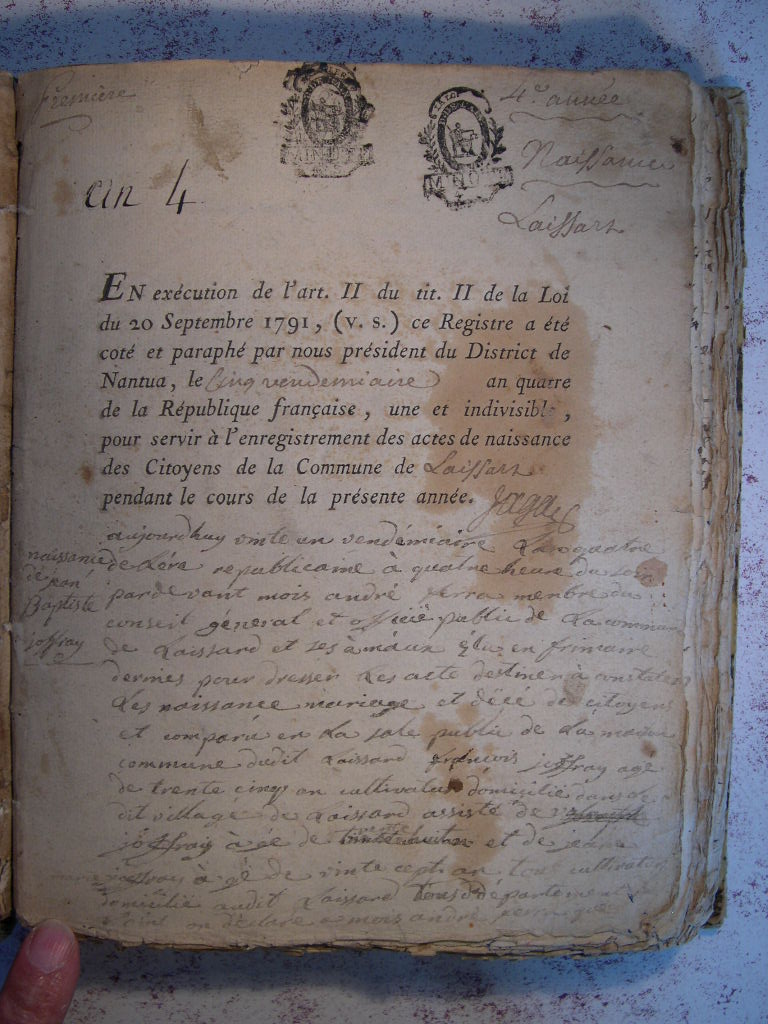 Première
4e année
Naissance
Laissart
an 4
EN exécution de l'art. II du tit. II de la Loi
du 20 Septembre 1791, (v. s.) ce Registre a été
coté et paraphé par nous président du District de
Nantua, le Cinq vendemiaire an quatre
de la République française, une et indivisible,
pour servir à l'enregistrement des actes de naissance
des Citoyens de la Commune de Laissart
pendant le cours de la présente année.
aujourdhuy vinte un vendémiaire Lan quatre
de Lére republicaine à quatre heure du soir
pardevant mois andré perra menbre du
conseil général et officié public de La commune
de Laissard et ses amaux élu en frimaire
dermes pour dresser Les acte destiner à constater
Les naissance mariage et décé de citoyens
et comparu en La sale public de La maison
commune dudit Laissard francois joffray age
de trente cinq an cultivateur domicilié dans le
dit village de Laissard assisté de
joffray à gé de et de jeane
marie joffray à gé de vinte cept an tous cultivateur
domicilié audit Laissard tous departement
on déclare a mois andré perra que
naissance
de jean
Baptiste
joffray